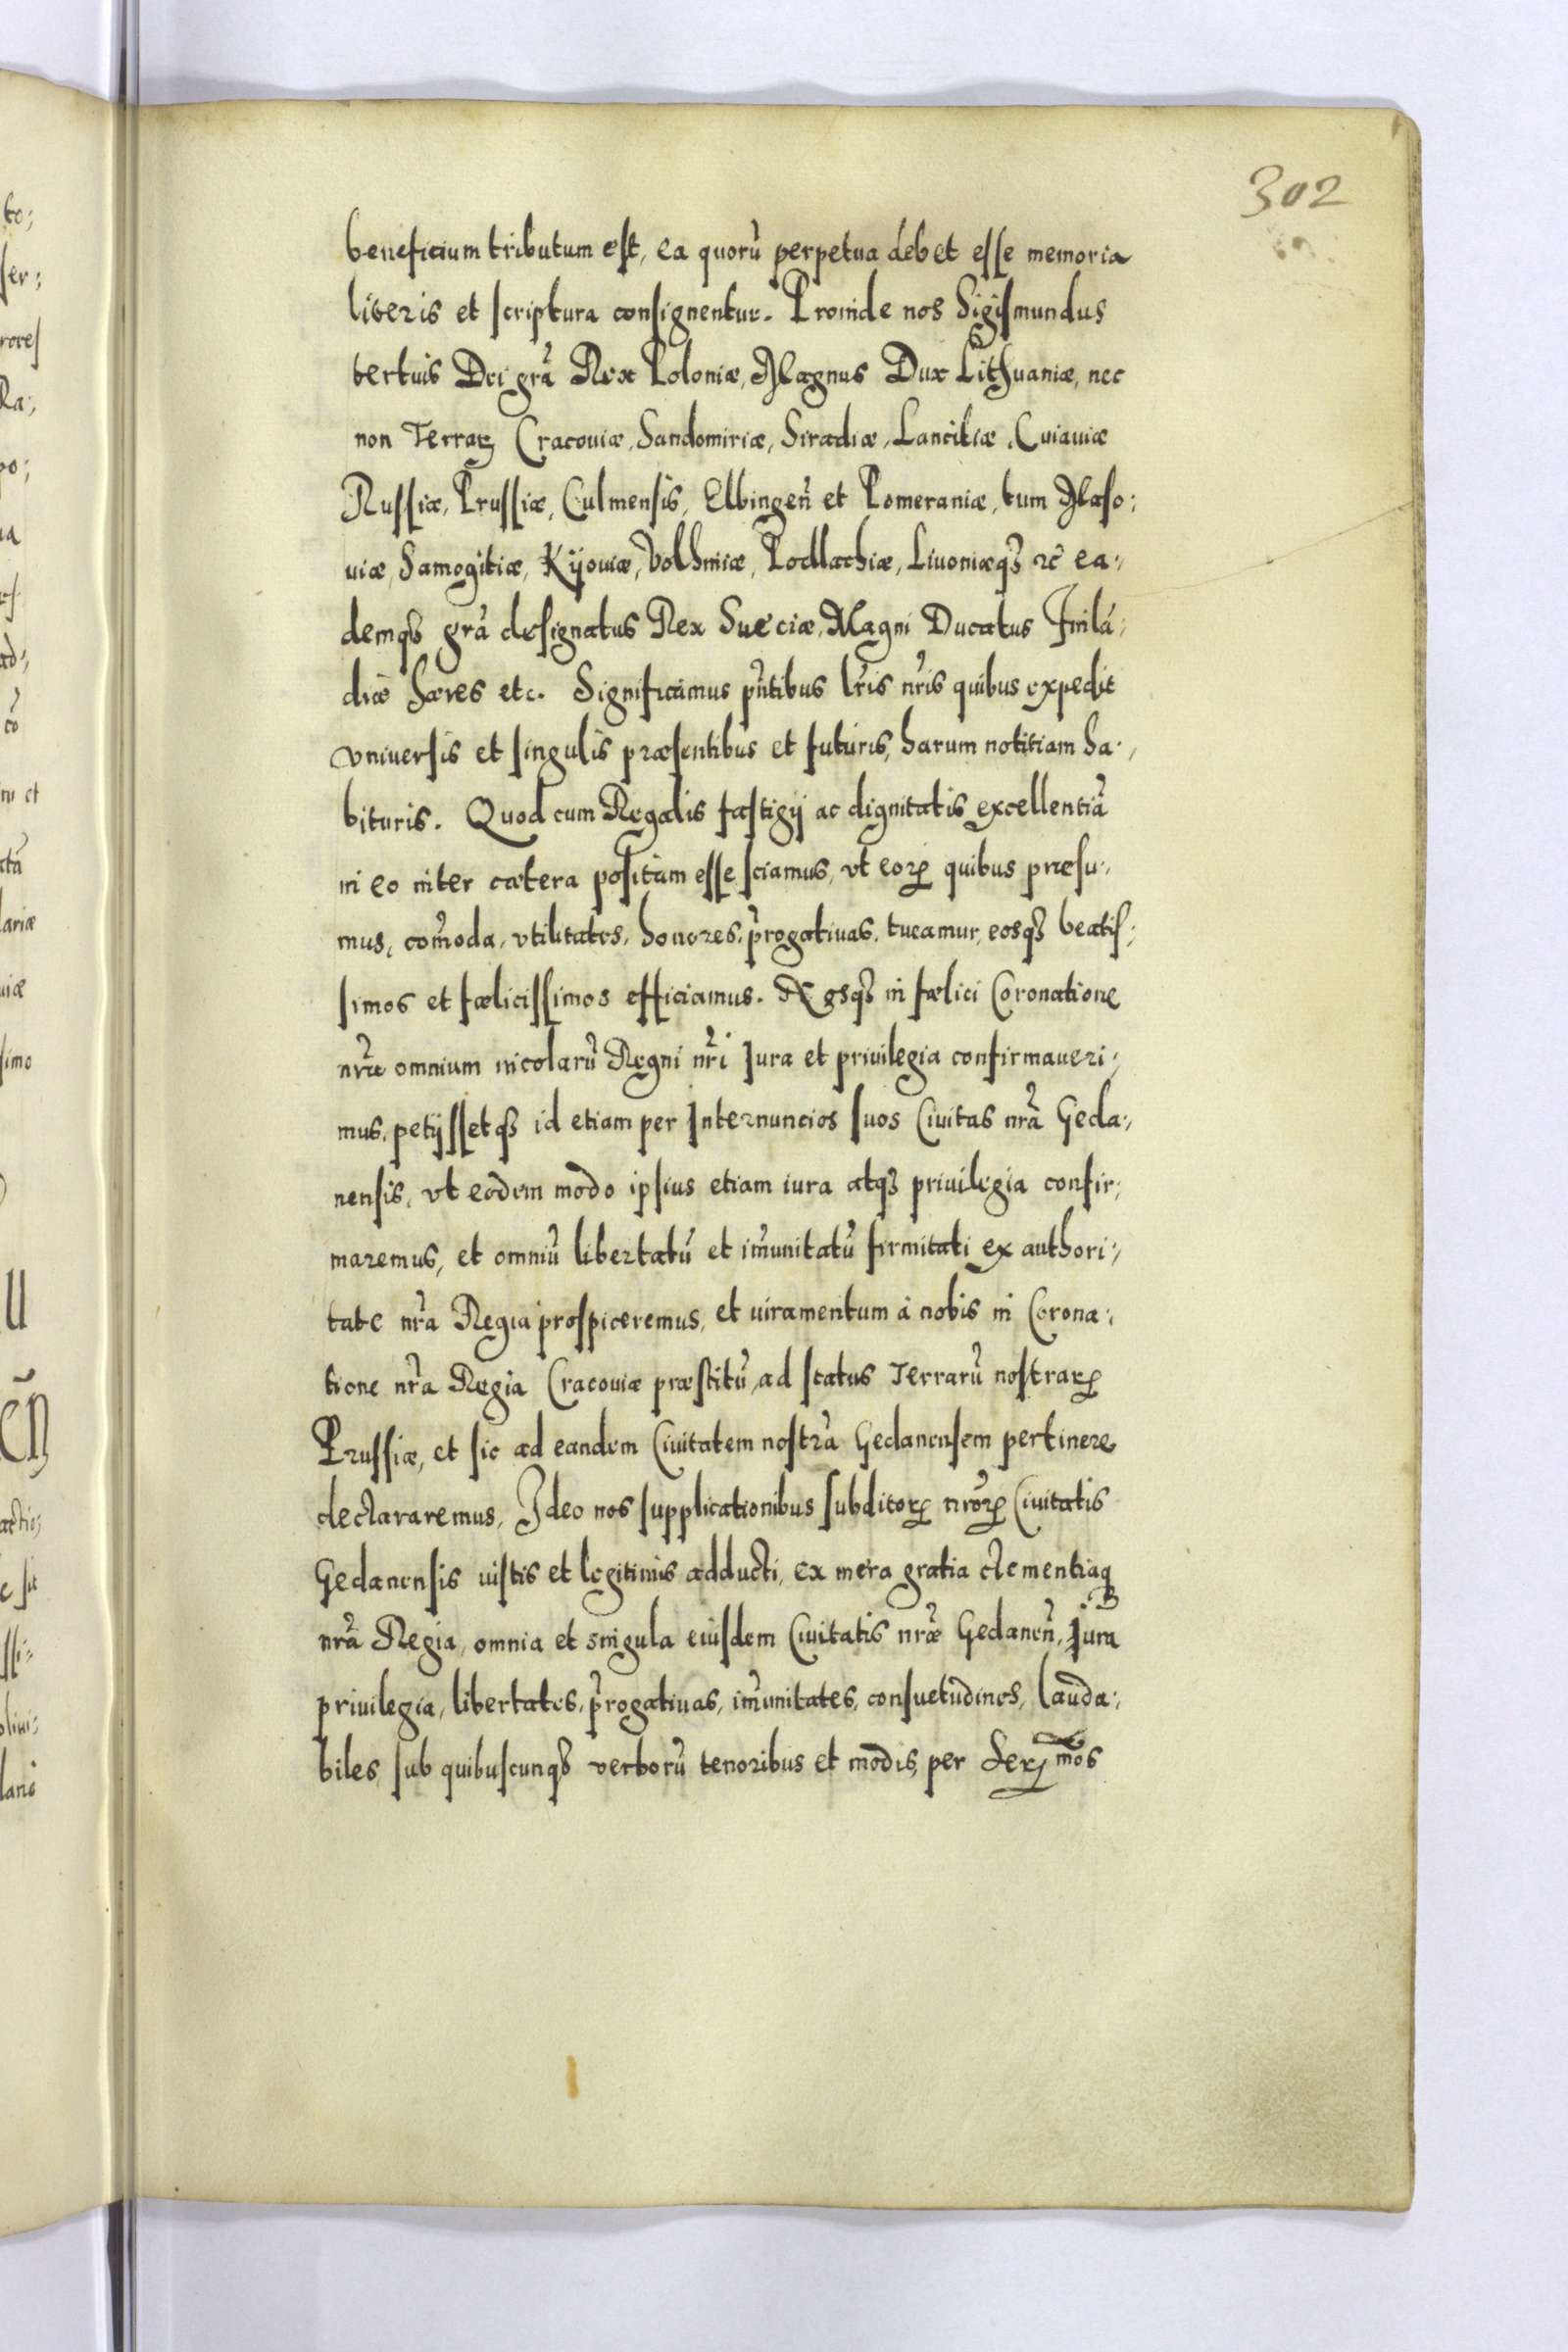 302
beneficium tributum est, ea quorũ perpetua debet esse memoria
literis et scriptura consignentur. Proinde nos Sigismundus
tertius Dei grã Rex Poloniæ, Magnus Dux Lithuaniæ, nec
non Terraꝝ Cracouiæ, Sandomiriæ, Siradiæ, Lanciciæ, Cuiauiæ
Russiæ, Prussiæ, Culmensis, Elbingeñ et Pomeraniæ, tum Maso:
uiæ, Samogitiæ, Kÿouiæ, Volhiniæ, Podlachiæ, Liuoniæqꝫ ꝛc̃ ea:
demqꝫ grã designatus Rex Sueciæ, Magni Ducatus Finlã:
diæ hæres etc. Significamus pñtibus lr̃is nr̃is quibus expedit
vniuersis et singulis præsentibus et futuris, harum notitiam ha:
bituris. Quod cum Regalis fastigij ac dignitatis excellentiã
in eo inter cætera positam esse sciamus, vt eoꝝ quibus præsu:
mus, com̃oda, vtilitates, honores, p̃rogatiuas, tueamur, eosqꝫ beatis:
simos et fælicissimos efficiamus.
in fælici Coronatione
nr̃a omnium incolarũ Regni nr̃i Jura et priuilegia confirmaueri:
mus, petijssetqꝫ id etiam per Internuncios suos Ciuitas nr̃a Geda:
nensis, vt eodem modo ipsius etiam iura atqꝫ priuilegia confir:
maremus, et omniũ libertatũ et im̃unitatũ firmitati ex authori:
tate nr̃a Regia prospiceremus, et iuramentum à nobis in Corona:
tione nr̃a Regia Cracouiæ præstitũ, ad status Terrarũ nostraꝝ
Prussiæ, et sic ad eandem Ciuitatem nostrã Gedanensem pertinere
declararemus, Ideo nos supplicationibus subditoꝝ nr̃oꝝ Ciuitatis
Gedanensis iustis et legitimis adducti, ex mera gratia clementiaqꝫ
nr̃a Regia, omnia et singula eiusdem Ciuitatis nr̃æ Gedaneñ, Jura
priuilegia, libertates, p̃rogatiuas, im̃unitates, consuetudines, lauda:
biles, sub quibuscunqꝫ verborũ tenoribus et modis, per Serꝫmos